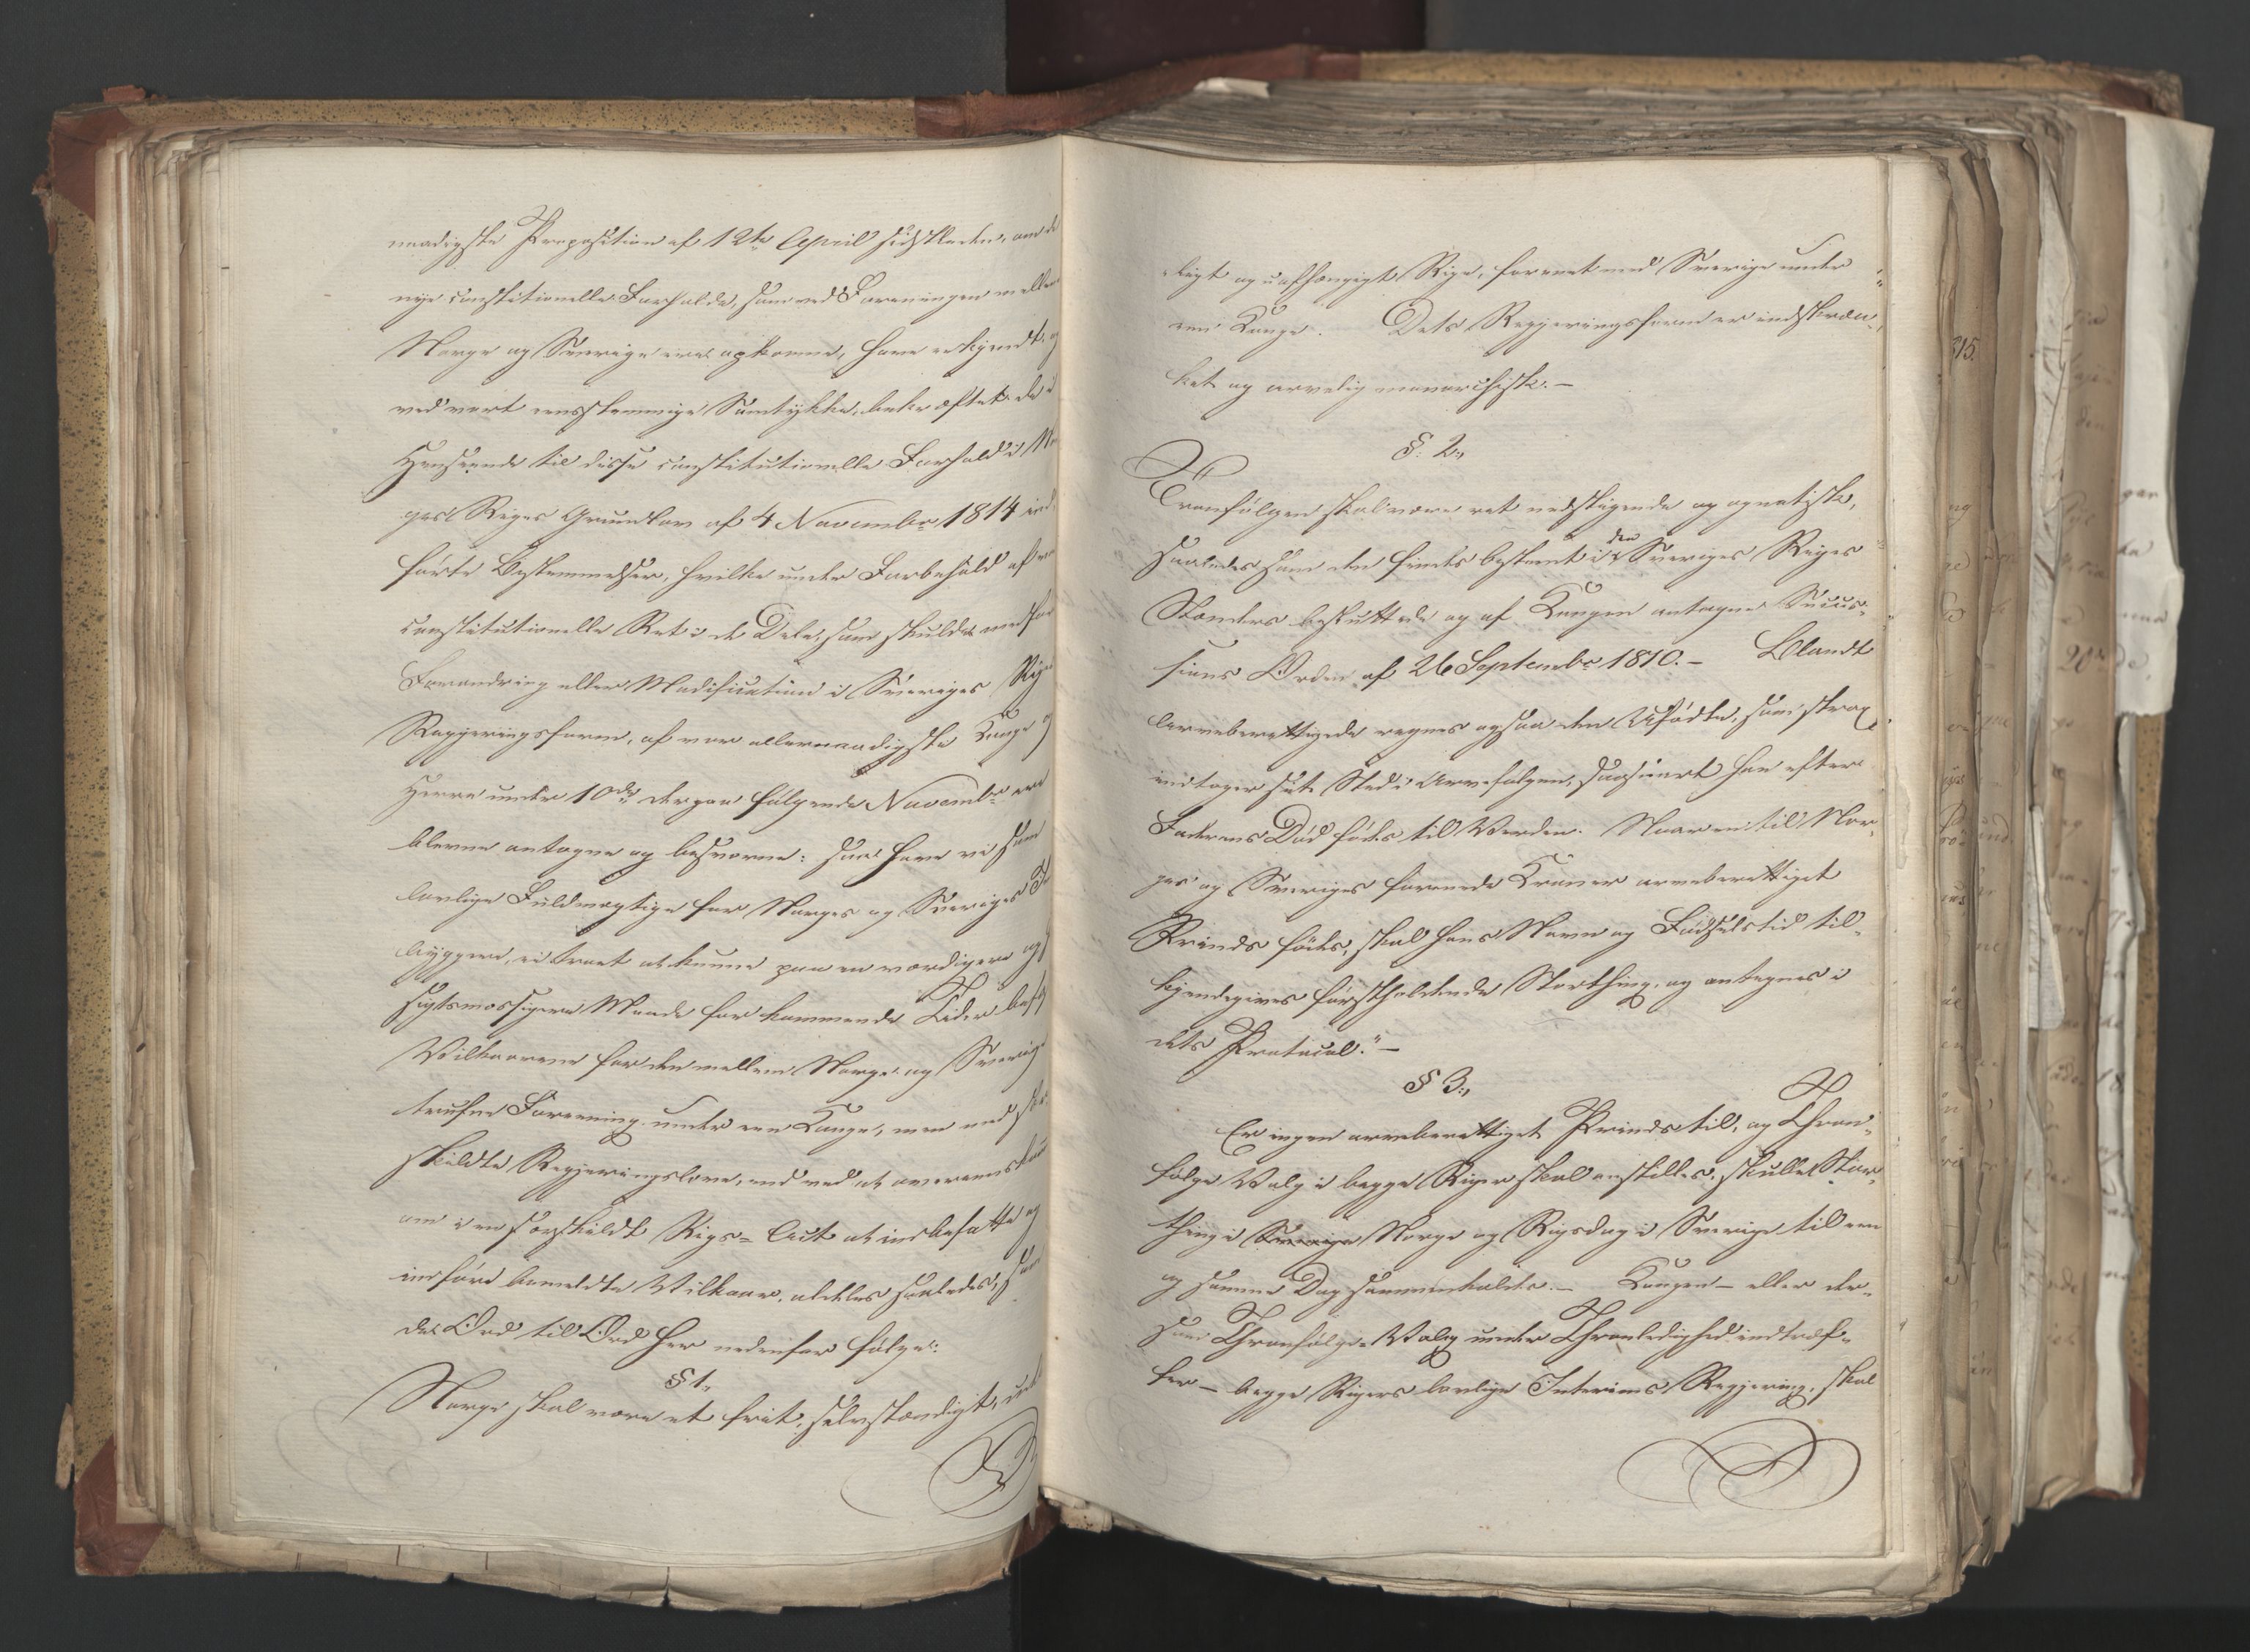 naadigste Proposition af 12te April sidstleden, om de
nye constitionelle Forholde, som ved Foreningen mellem
Norge og Sverige ere opkomne, have erkjendt og
ved vort eensstemmige Samtykke, bekræftet de i
Henseende til disse constitutionelle Forhold i Nor
ges Riges Grundlov af 4 Novembr 1814 ind,
førte Bestemmelser, hvilke under Forbehold af
constitutionelle Ret i de Dele, som skulde medføre
Forandring eller Modification i Sveriges Riges
Regjeringsform, af vor allernaadigste Konge og
Herre under 10de derpaa følgende Novembr ere
blevne antagne og besvorne: saa have vi som
lovlige Fuldmægtige for Norges og Sveriges
byggere, ei troet at kunne paa en værdigere og
sigtsmæssigere Maade for kommende Tider
Vilkaarene for den mellem Norge og Sverige
trufne Forening under een Konge, men med
skildte Regjeringslove, end ved at overeens
om i en særskildt Rigs= Act at indbefatte og
indføre bemeldte Vilkaar, aldeles saaledes, som
de Ord til Ord her nedenfor følge:
§ 1.
Norge skal være et frit, selvstændigt,
ligt og uafhængigt Rige, forenet med Sverige under
een Konge. Dets Regjeringsform er indskræn,
ket og arvelig monarchisk. –
§. 2.
Tronfølgen skal være ret nedstigende og agnatisk,
saaledes som den findes bestemt i den Sveriges Riges
Stænders besluttede og af Kongen antagne Succes-
sions Orden af 26 Septembr 1810. – Blandt
Arveberettigede regnes ogsaa den Ufødte, som strax
indtager sit Sted i Arvefølgen, saasnart han efter
Faderens Død fødes til Verden. Naar en til Nor,
ges og Sveriges forenede Kroner arveberettiget
Prinds fødes, skal hans Navn og Fødselstid til,
kjendegives førstholdende Storthing, og antegnes i
dets Protocol." –
§ 3.
Er ingen arveberettiget Prinds til, og Thron,
følge Valg i begge Riger skal anstilles, skulle Stor,
thing i Sverige Norge og Rigsdag i Sverige til een
og samme Dag sammenkaldes. – Kongen – eller der,
som Thronfølge Valg under Thronledighed indtræf-
fer – begge Rigers lovlige Interims Regjering, skal
315.